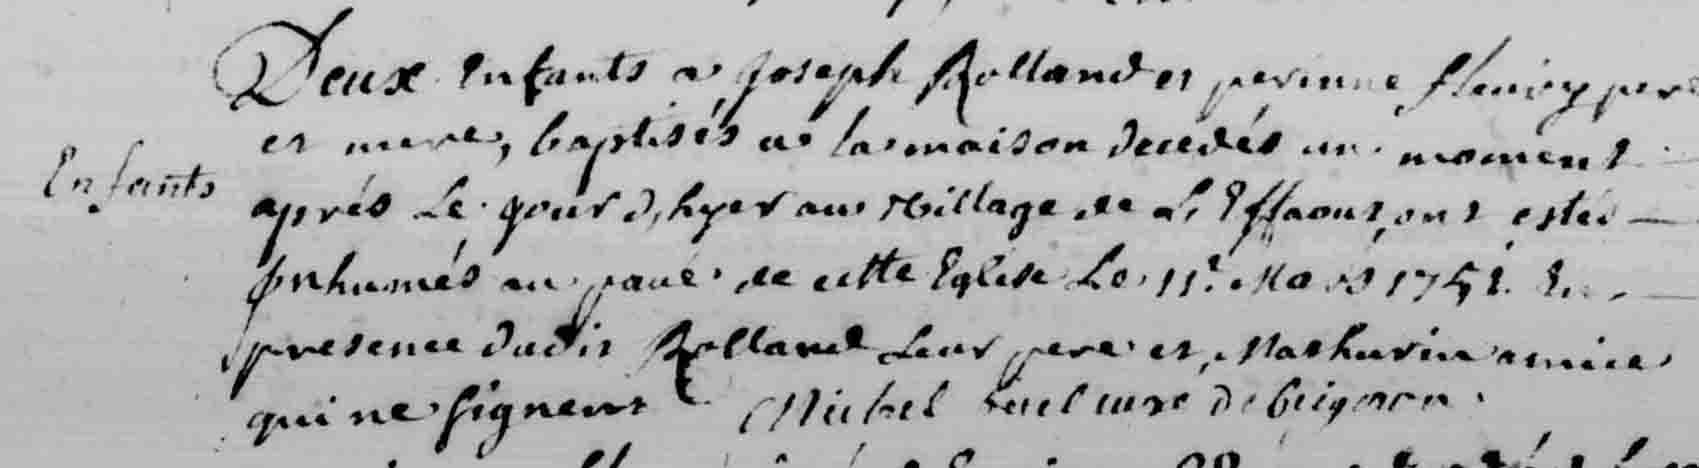 Deux Enfants a Joseph Rolland et perinne fleury pere
et mere, baptisés a la maison decedés un moment
Enfants
aprés Le jour d'hyer au Village de L'Effaout, ont estés
Inhumés au pavé de cette Eglise Le 11e Mars En
presence dudit Rolland Leur pere et, Mathurin amice
qui ne signent Michel curé de